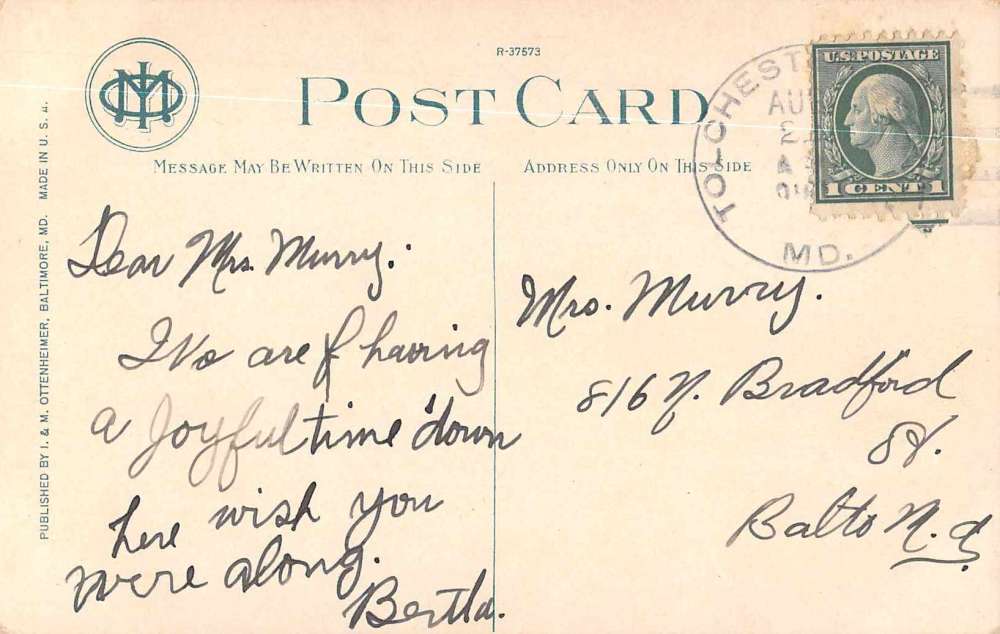 R-37573
POST CARD
MESSAGE MAY BE WRITTEN ON THIS SIDE
ADDRESS ONLY ON THIS SIDE
PUBLISHED BY I. & M. OTTENHEIMER, BALTIMORE, MD. MADE IN U. S. A.
TOLCHEST
AUG
MD.
U.S. POSTAGE
1 CENT 1
Dear Mrs. Murry:
We are having
a joyful time down
here wish you
were along.
Bertha.
Mrs. Murry.
816 N. Bradford
St.
Balto M.d.